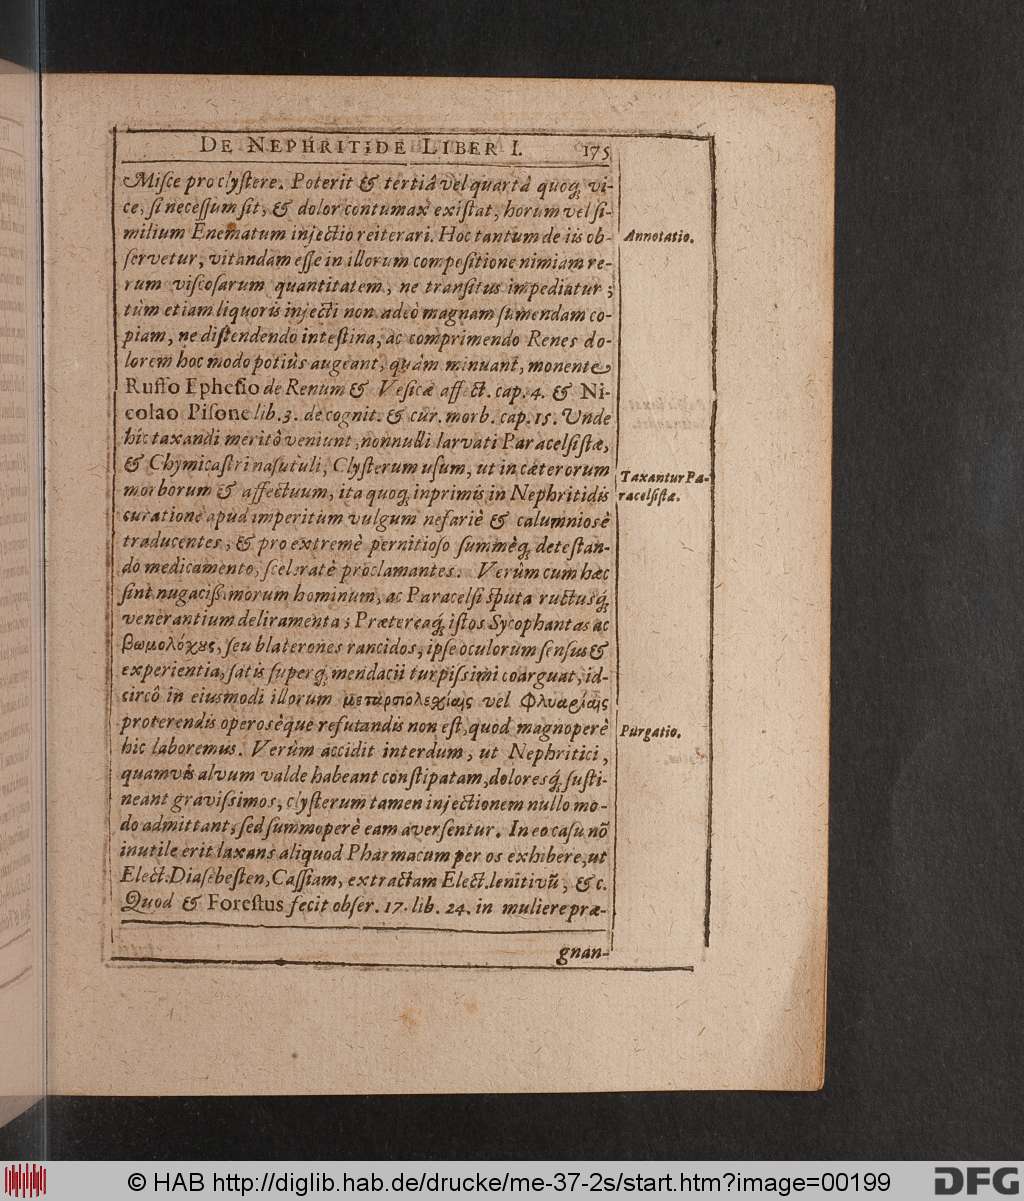 DE NEPHRITIDE LIBER I. 175
Miſce pro clyſtere. Poterit & tertiâ vel quartâ quoq; vi-
ce, ſi neceſſum ſit, & dolor contumax exiſtat, horum vel ſi-
milium Enematum injectio reiterari. Hoc tantum de iis ob-
Annotatio.
ſervetur, vitandam eſſe in illorum compoſitione nimiam re-
rum viſcoſarum quantitatem, ne tranſitus impediatur;
tùm etiam liquoris injecti non adeò magnam ſumendam co-
piam, ne diſtendendo inteſtina, ac comprimendo Renes do-
lorem hoc modo potiùs augeant, quàm minuant, monente
Ruffo Epheſio de Renum & Veſicæ affect. cap. 4. & Ni-
colao Piſone lib. 3. de cognit. & cur. morb. cap. 15. Unde
hîc taxandi meritô veniunt, nonnulli larvati Paracelſiſtæ,
& Chymicaſtri naſutuli, Clyſterum uſum, ut in cæterorum
Taxantur Pa-
racelſiſtæ.
morborum & affectuum, ita quoq; inprimis in Nephritidis
curatione apud imperitum vulgum nefariè & calumniosè
traducentes, & pro extremè pernitioſo ſummèq; deteſtan-
do medicamento, ſceleratè proclamantes. Verùm cum hæc
ſint nugaciſſimorum hominum, ac Paracelſi ſputa ructusq;
venerantium deliramenta; Prætereaq; iſtos Sycophantas ac
βωμολόχȣς, ſeu blaterones rancidos, ipſe oculorum ſenſus &
experientia, ſatis ſuperq; mendacii turpiſſimi coarguat, id-
circô in eiusmodi illorum μεταρσιολεχίαις vel Φλυαρίαις
proterendis operosèque refutandis non eſt, quod magnoperè
Purgatio.
hic laboremus. Verùm accidit interdum, ut Nephritici,
quamvis alvum valde habeant conſtipatam, doloresq; ſuſti-
neant graviſsimos, clyſterum tamen injectionem nullo mo-
do admittant, ſed ſummoperè eam averſentur. In eo caſu nō
inutile erit laxans aliquod Pharmacum per os exhibere, ut
Elect. Diaſebeſten, Caſſiam, extractam Elect. lenitivū, & c.
Quod & Foreſtus fecit obſer. 17. lib. 24. in muliere præ-
gnan-
© HAB http://diglib.hab.de/drucke/me-37-2s/start.htm?image=00199
DFG